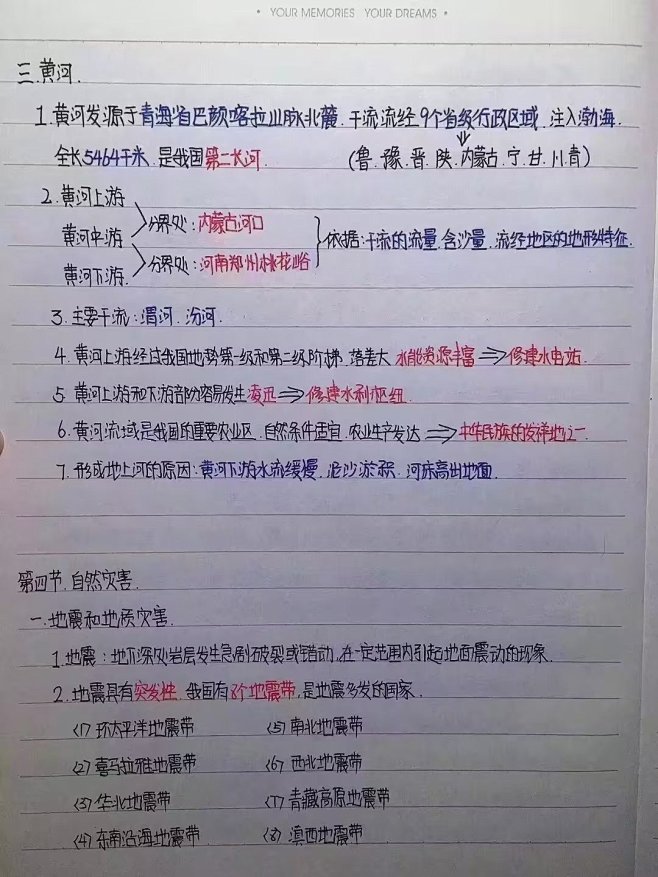 • YOUR MEMORIES YOUR DREAMS •
三.黄河.
1.黄河发源于青海省巴颜喀拉山脉北麓.干流流经9个省级行政区域.注入渤海.
全长5464千米.是我国第二长河. (鲁.豫.晋.陕.内蒙古.宁.甘.川.青)
2.黄河上游
分界处:内蒙古河口
黄河中游 依据:干流的流量.含沙量.流经地区的地形特征.
分界处:河南郑州桃花峪
黄河下游.
3.主要干流:渭河.汾河.
4.黄河上游经过我国地势第一级和第二级阶梯.落差大.水能资源丰富⇒修建水电站.
5.黄河上游和下游部分容易发生凌汛⇒修建水利枢纽.
6.黄河流域是我国的重要农业区.自然条件适宜.农业生产发达⇒中华民族的发祥地之一.
7.形成地上河的原因:黄河下游水流缓慢.泥沙淤积.河床高出地面.
第四节.自然灾害.
一.地震和地质灾害.
1.地震:地下深处岩层发生急剧破裂或错动.在一定范围内引起地面震动的现象.
2.地震具有突发性.我国有8个地震带.是地震多发的国家.
<1>环太平洋地震带 <5>南北地震带
<2>喜马拉雅地震带 <6>西北地震带
<3>华北地震带 <7>青藏高原地震带
<4>东南沿海地震带 <8>滇西地震带